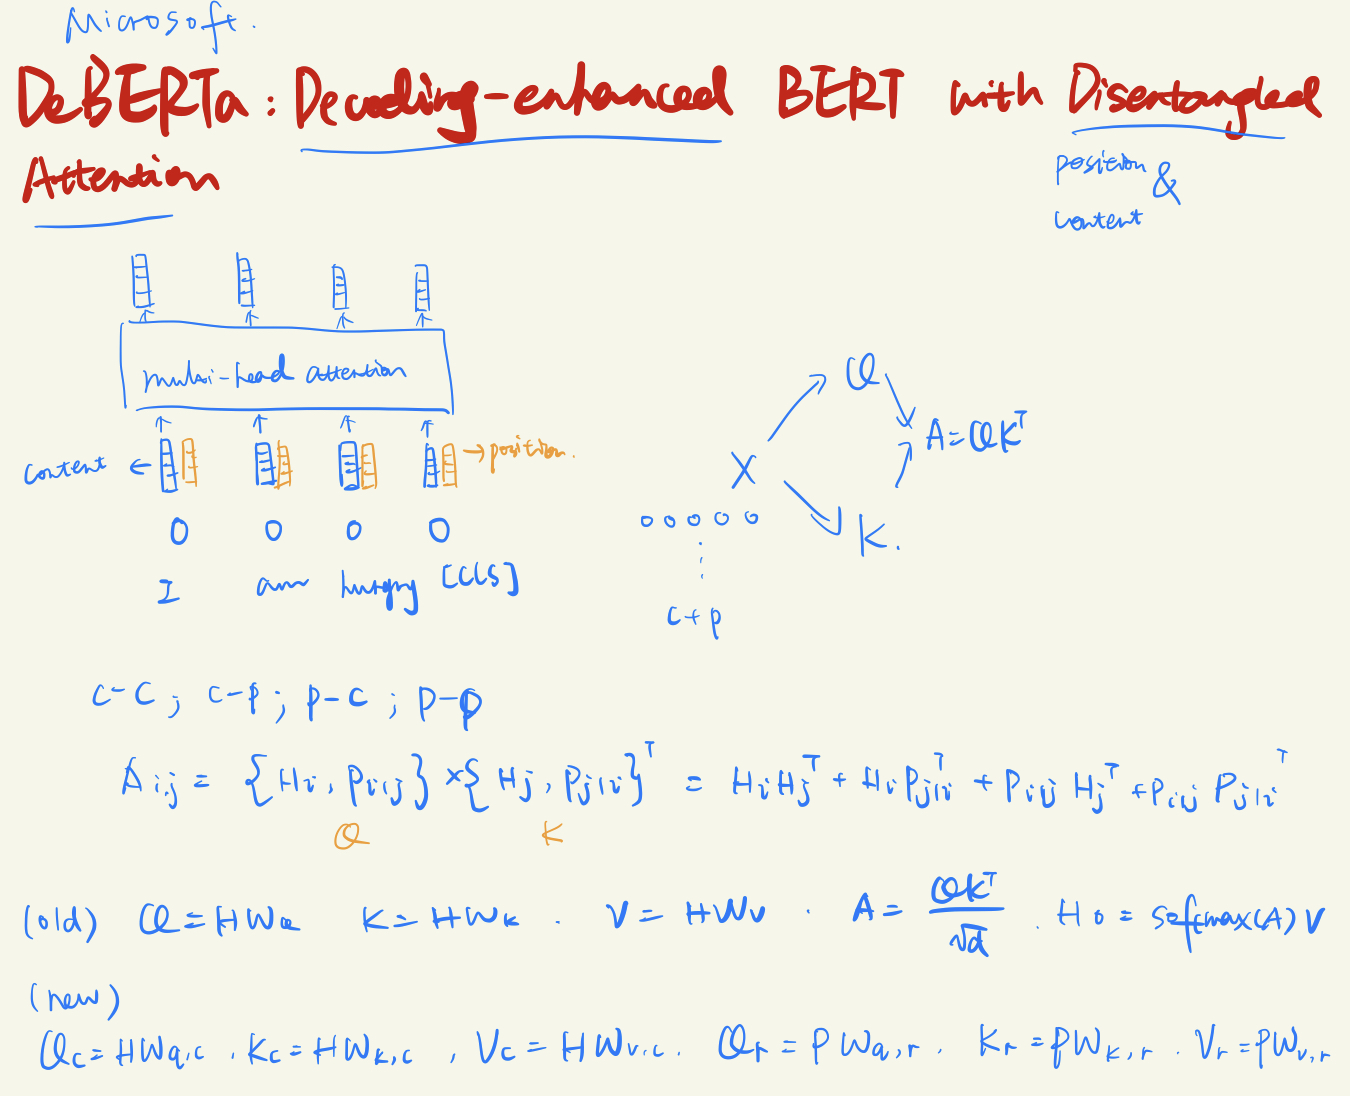 Microsoft.
DeBERTa: Decoding-enhanced BERT with Disentangled
Attention
position &
content
multi-head attention
content ← → position.
I am hungry [CLS]
X Q K. A=QK^T
c+p
c-c; c-p; p-c; p-p
A_{i,j} = {H_i, P_{i|j}} × {H_j, P_{j|i}}^T = H_i H_j^T + H_i P_{j|i}^T + P_{i|j} H_j^T + P_{i|j} P_{j|i}^T
Q K
(old) Q=HW_Q K=HW_K. V=HW_V. A=QK^T/√d. H_o = softmax(A)V
(new)
Q_c=HW_{q,c}, K_c=HW_{k,c}, V_c=HW_{v,c}. Q_r=PW_{q,r}. K_r=PW_{k,r}. V_r=PW_{v,r}